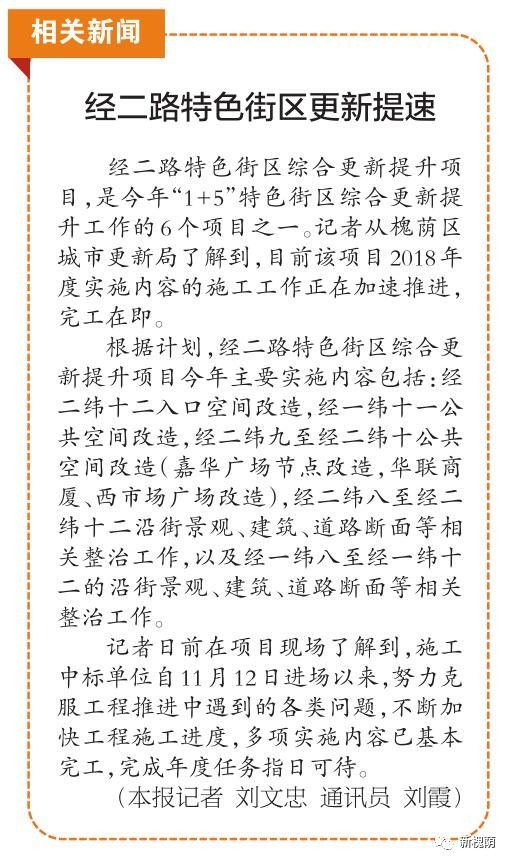 相关新闻
经二路特色街区更新提速
经二路特色街区综合更新提升项
目，是今年“1+5”特色街区综合更新提
升工作的6个项目之一。记者从槐荫区
城市更新局了解到，目前该项目2018年
度实施内容的施工工作正在加速推进，
完工在即。
根据计划，经二路特色街区综合更
新提升项目今年主要实施内容包括：经
二纬十二入口空间改造，经一纬十一公
共空间改造，经二纬九至经二纬十公共
空间改造（嘉华广场节点改造，华联商
厦、西市场广场改造），经二纬八至经二
纬十二沿街景观、建筑、道路断面等相
关整治工作，以及经一纬八至经一纬十
二的沿街景观、建筑、道路断面等相关
整治工作。
记者日前在项目现场了解到，施工
中标单位自11月12日进场以来，努力克
服工程推进中遇到的各类问题，不断加
快工程施工进度，多项实施内容已基本
完工，完成年度任务指日可待。
（本报记者 刘文忠 通讯员 刘霞）
新槐荫